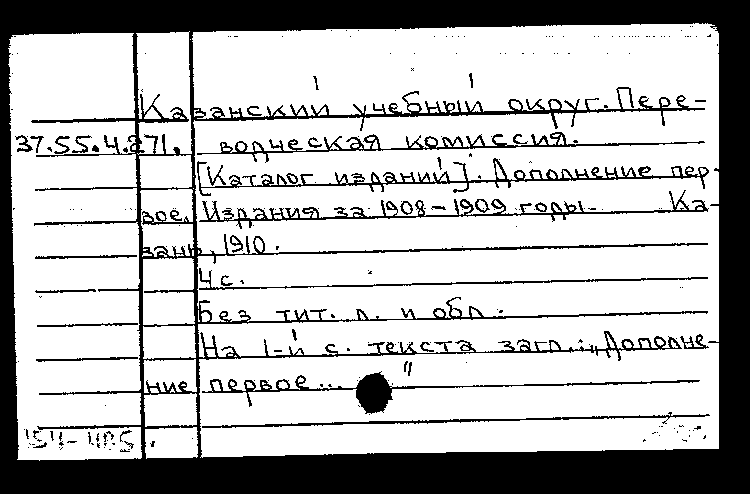 Казанский учебный округ. Пере-
37.55.4.271. водческая комиссия.
[Каталог изданий]. Дополнение пер-
вое. Издания за 1908-1909 годы. Ка-
зань, 1910.
4 с.
Без тит. л. и обл.
На 1-й с. текста загл.: „Дополне-
ние первое... "
154-485.